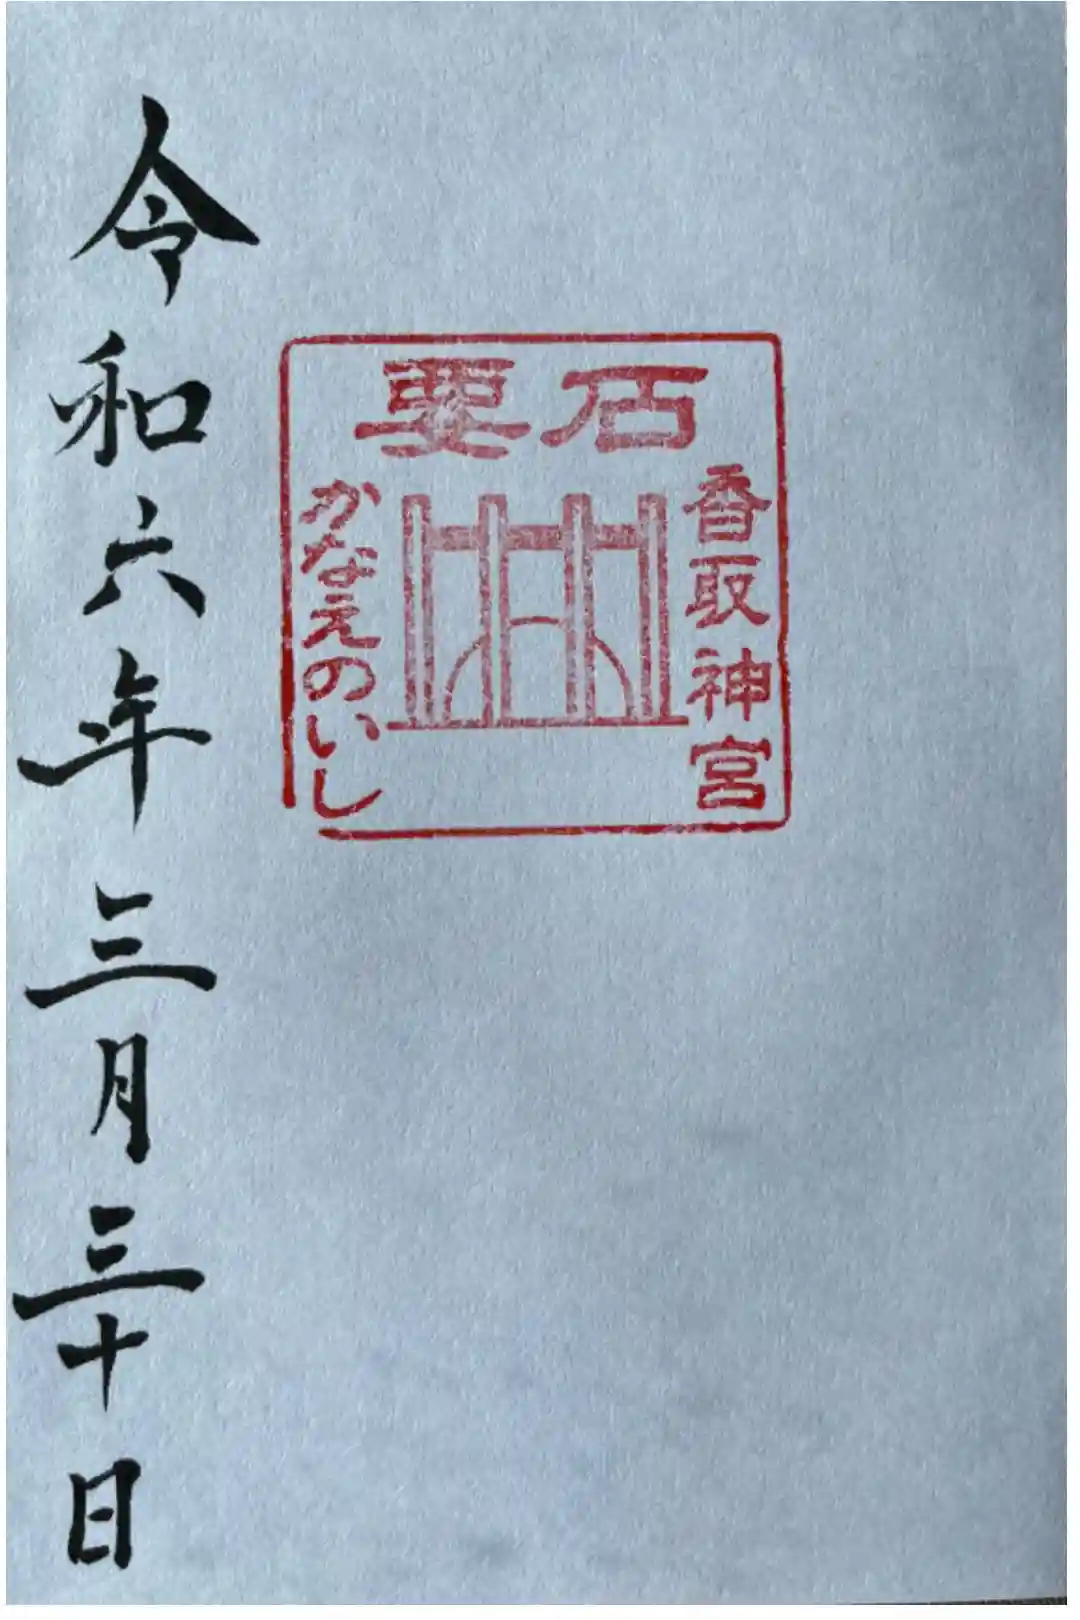 要石
香取神宮
かなえのいし
令和六年三月三十日